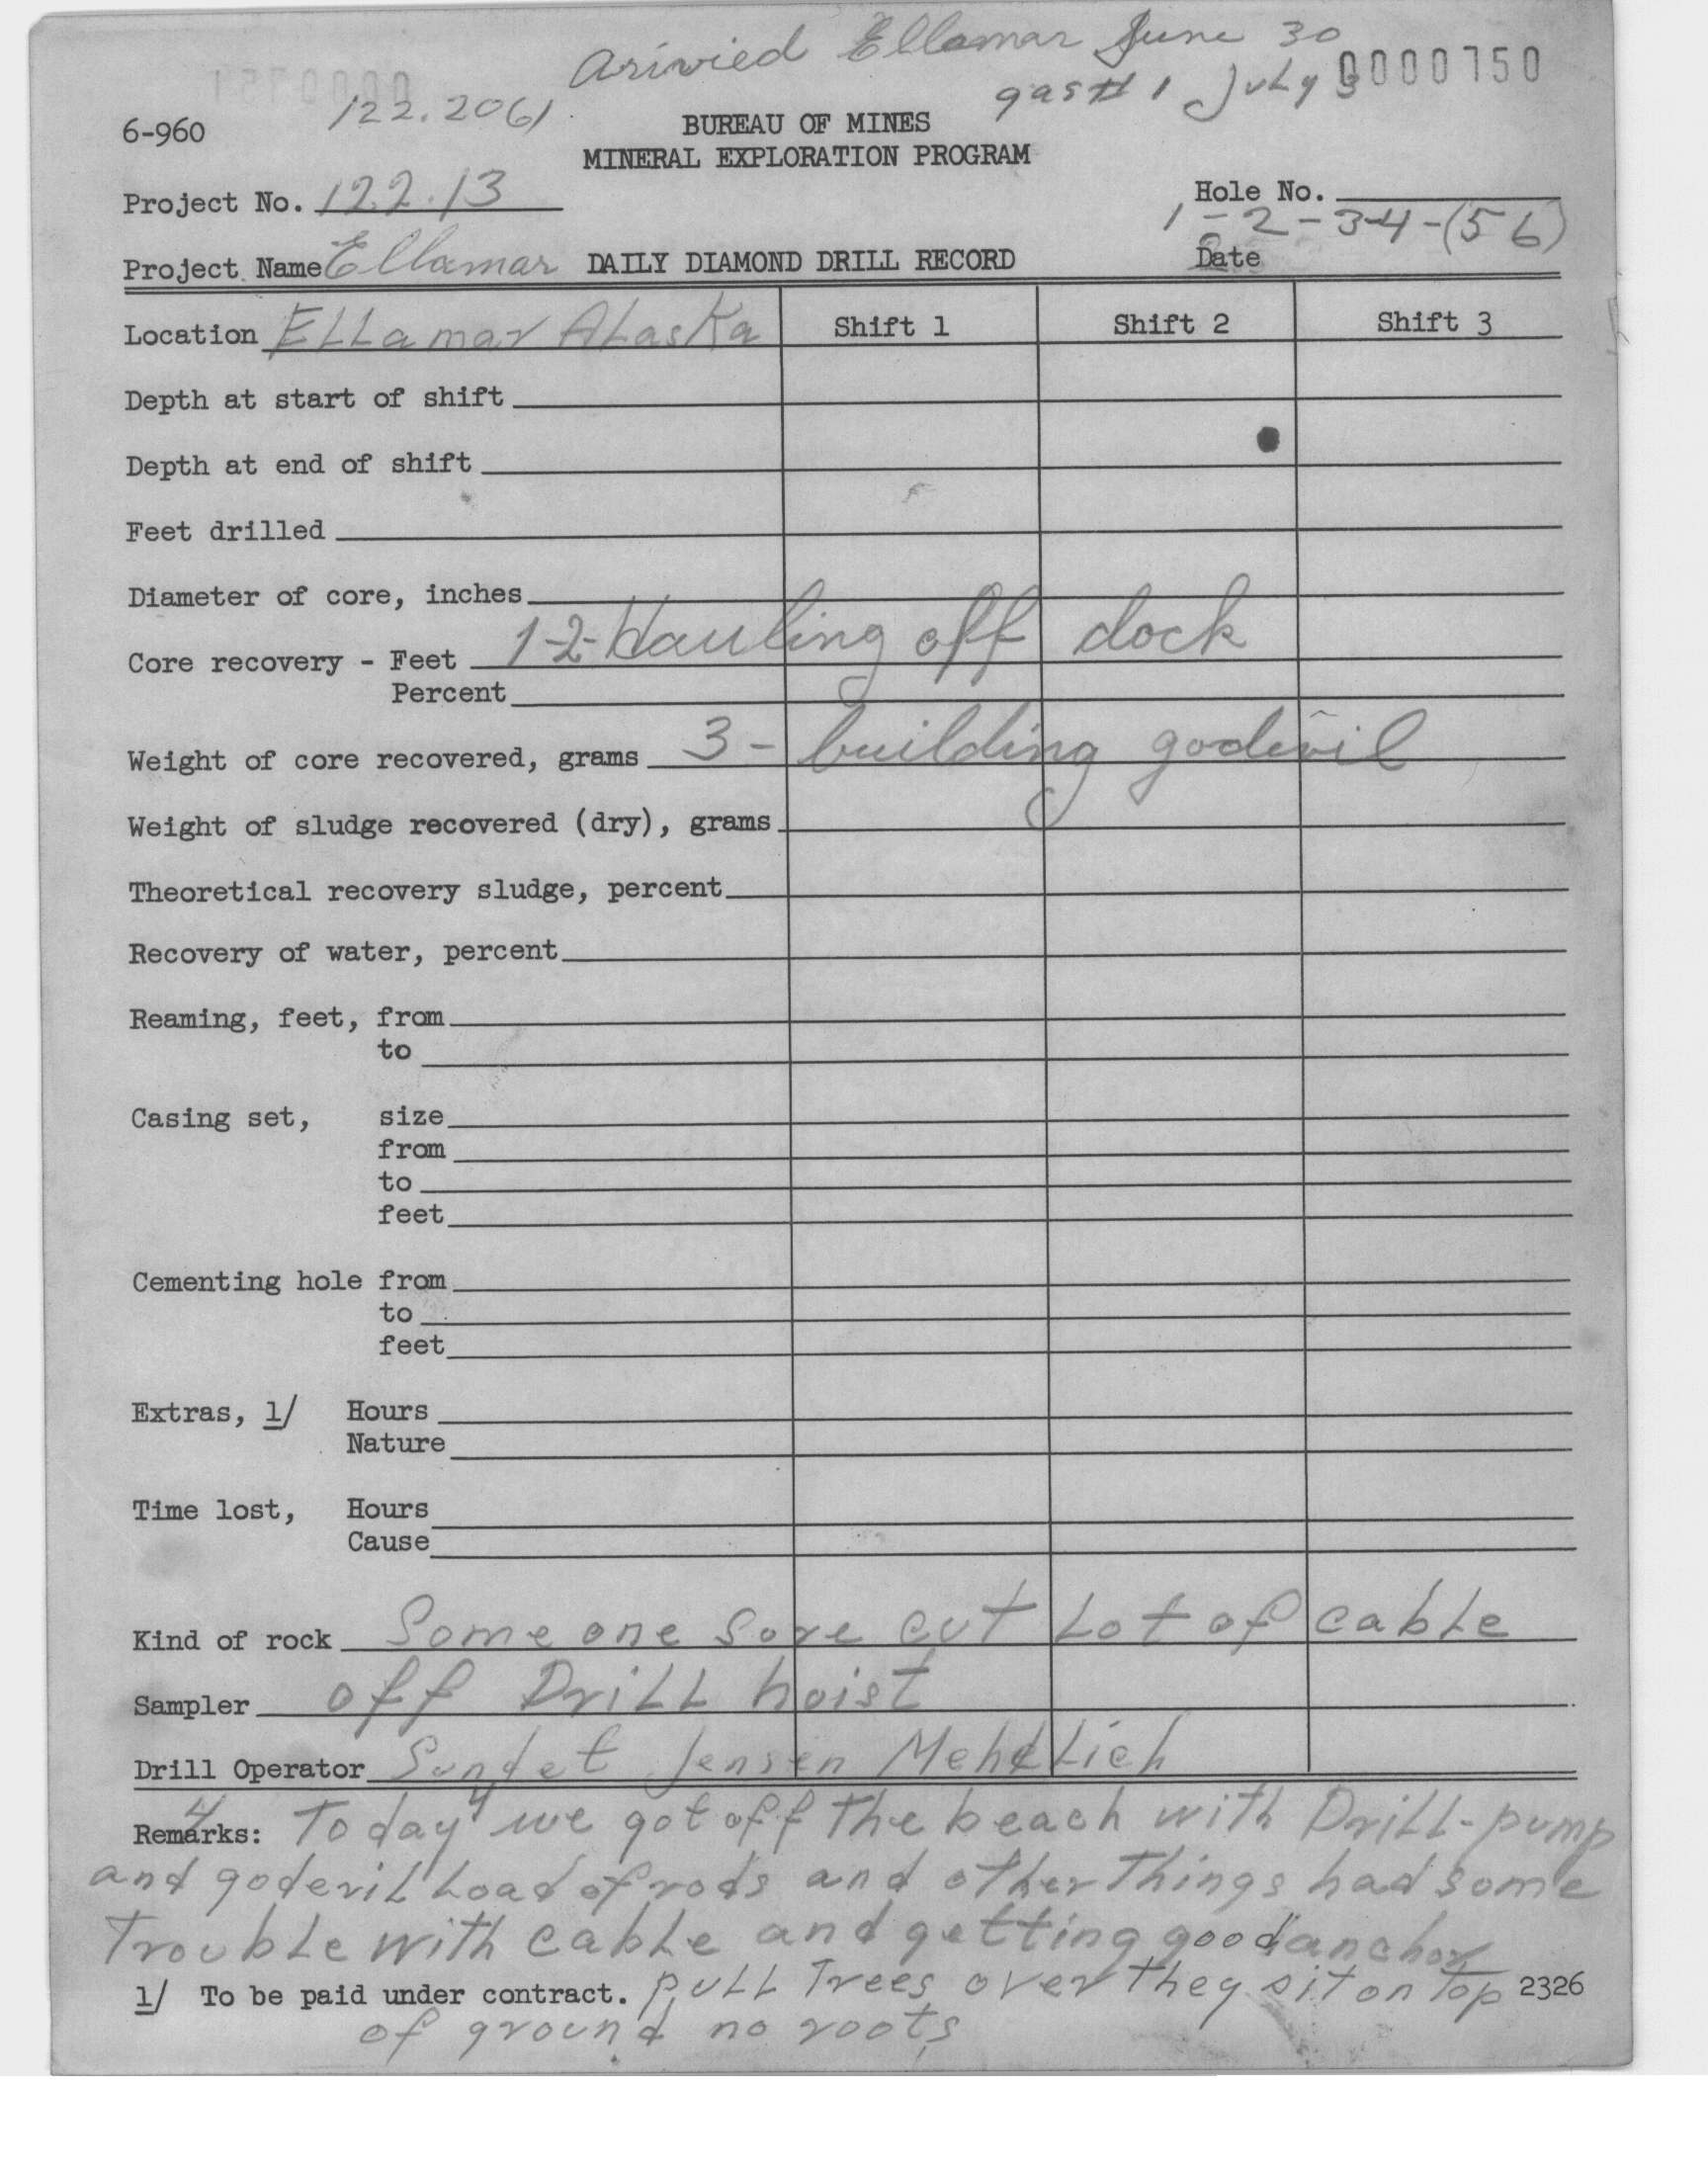 Arivied Ellamar June 30
0000750
gas # 1 July 3
122.2061
6-960
BUREAU OF MINES
MINERAL EXPLORATION PROGRAM
Project No. 122.13
Hole No.
1-2-3-4-(5 6)
Project Name Ellamar DAILY DIAMOND DRILL RECORD Date
Location ELLamar ALaska Shift 1 Shift 2 Shift 3
Depth at start of shift
Depth at end of shift
Feet drilled
Diameter of core, inches
Core recovery - Feet 1-2-Hauling off dock
Percent
Weight of core recovered, grams 3 - building godevil
Weight of sludge recovered (dry), grams
Theoretical recovery sludge, percent
Recovery of water, percent
Reaming, feet, from
to
Casing set, size
from
to
feet
Cementing hole from
to
feet
Extras, 1/ Hours
Nature
Time lost, Hours
Cause
Kind of rock Some one sore cut Lot of cable
Sampler off DriLL hoist
Drill Operator Sundet Jensen
Remarks: 4 Today 4 we got off the beach with DriLL-pump
and godevil Load of rods and other Things had some
TroubLe with cabLe and getting good anchor
1/ To be paid under contract. puLL Trees over They sit on Top 2326
of ground no roots